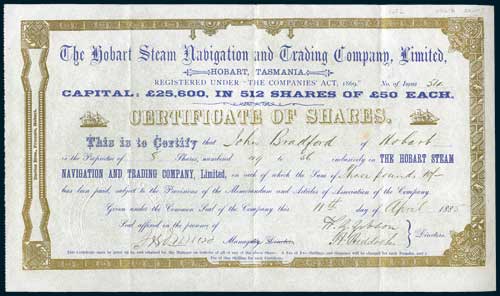 The Hobart Steam Navigation and Trading Company, Limited.
HOBART, TASMANIA.
REGISTERED UNDER "THE COMPANIES' ACT, 1869."
No. of Issue
CAPITAL: £25,600, IN 512 SHARES OF £50 EACH.
CERTIFICATE OF SHARES.
This is to Certify that John Bradford of Hobart
is the Proprietor of 8 Shares, numbered 49 to 56 inclusively in THE HOBART STEAM
NAVIGATION AND TRADING COMPANY, Limited, on each of which the Sum of three pounds 10/-
has been paid, subject to the Provisions of the Memorandum and Articles of Association of the Company.
Given under the Common Seal of the Company this 11th day of April 1885
Seal affixed in the presence of
Managing Director.
Directors.